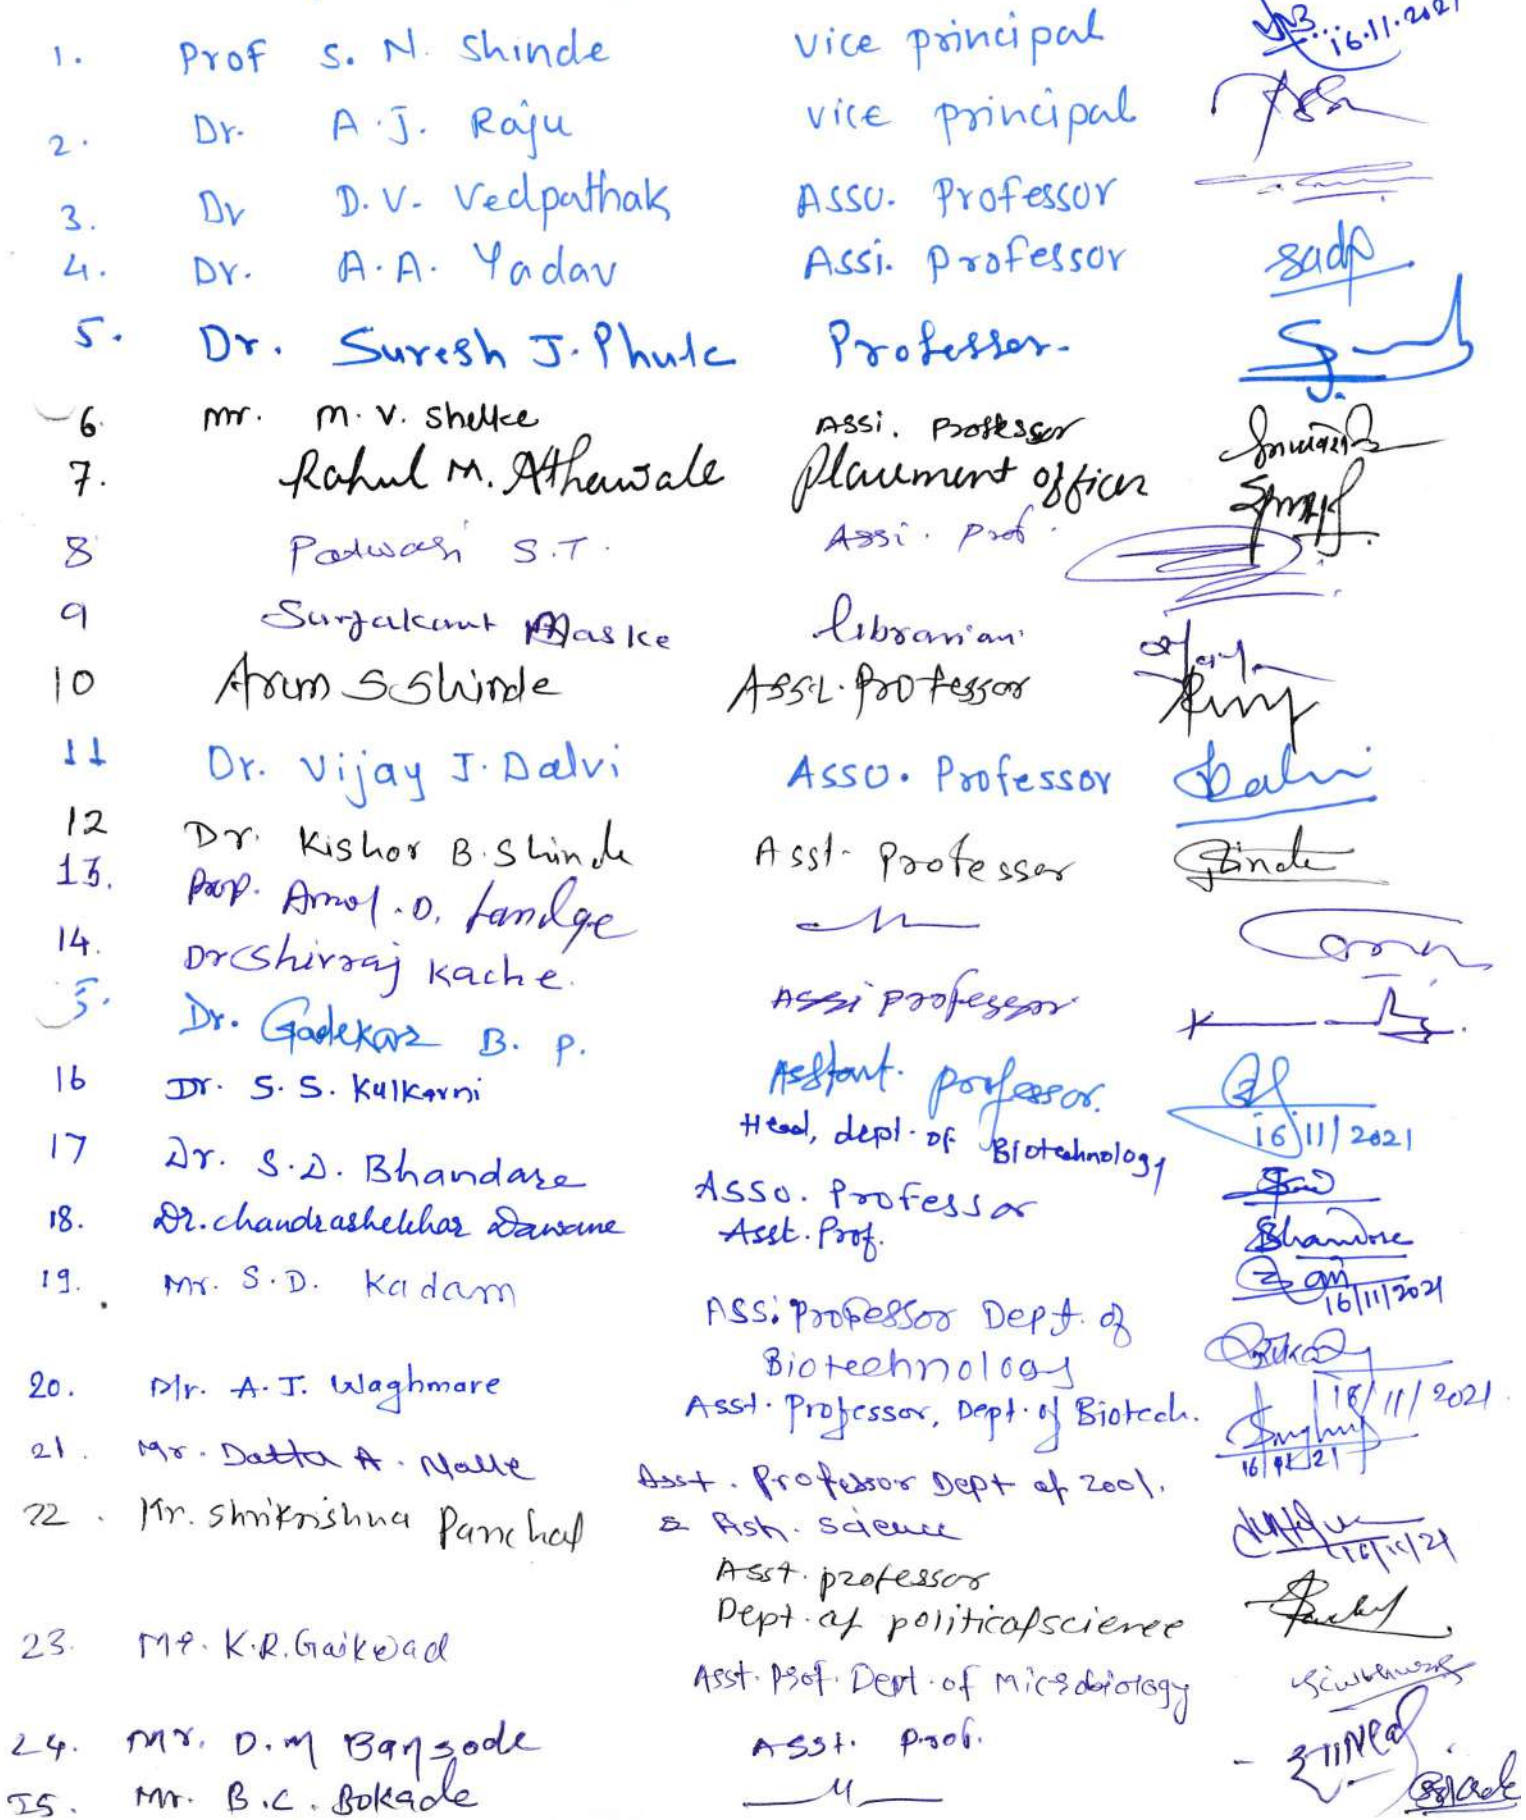 1. Prof S. N. Shinde Vice principal 16.11.2021
2. Dr. A. J. Raju vice principal
3. Dr D. V. Vedpathak Asso. Professor
4. Dr. A. A. Yadav Assi. Professor
5. Dr. Suresh J. Phule Professor.
6. Mr. M. V. Shelke Assi. Professor
7. Rahul M. Athawale Placement officer
8 S.T. Assi. Prof.
9 Suryakant Maske Librarian
10 Arun S Shinde Assi. Professor
11 Dr. Vijay J. Dalvi Asso. Professor Dalvi
12 Dr. Kishor B. Shinde Asst. Professor Shinde
13. Prof. Amol. D. Landge — 11 —
14. Dr Shivraj Kache. Assi professor
5. Dr. Gadekar B. P. Assistant. professor. 16/11/2021
16 Dr. S. S. Kulkarni Head, dept. of Biotechnology
17 Dr. S. D. Bhandare Asso. Professor Bhandare
18. Dr. Chandrashekhar Dawane Asst. Prof. 16/11/2021
19. Mr. S. D. Kadam Assi Professor Dept. of
Biotechnology 16/11/2021
20. Mr. A. J. Waghmare Asst. Professor, Dept. of Biotech. 16/11/21
21. Mr. Datta A. Nalle Asst. Professor Dept of Zool.
& Fish. Science 16/11/21
22. Mr. Shrikrishna Panchal Asst. professor
Dept. of political science
23. Mr. K. R. Gaikwad Asst. Prof. Dept. of Microbiology
24. Mr. D. M Bansode Asst. Prof.
25. Mr. B. C. Bokade — 11 —